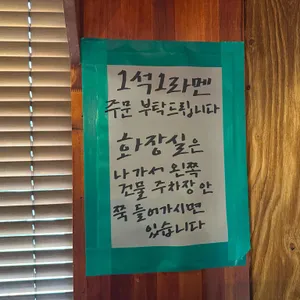 1석1라멘
주문 부탁드립니다
화장실은
나가서 왼쪽
건물 주차장 안
쭉 들어가시면
있습니다